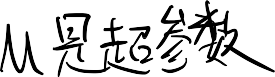 M是超参数